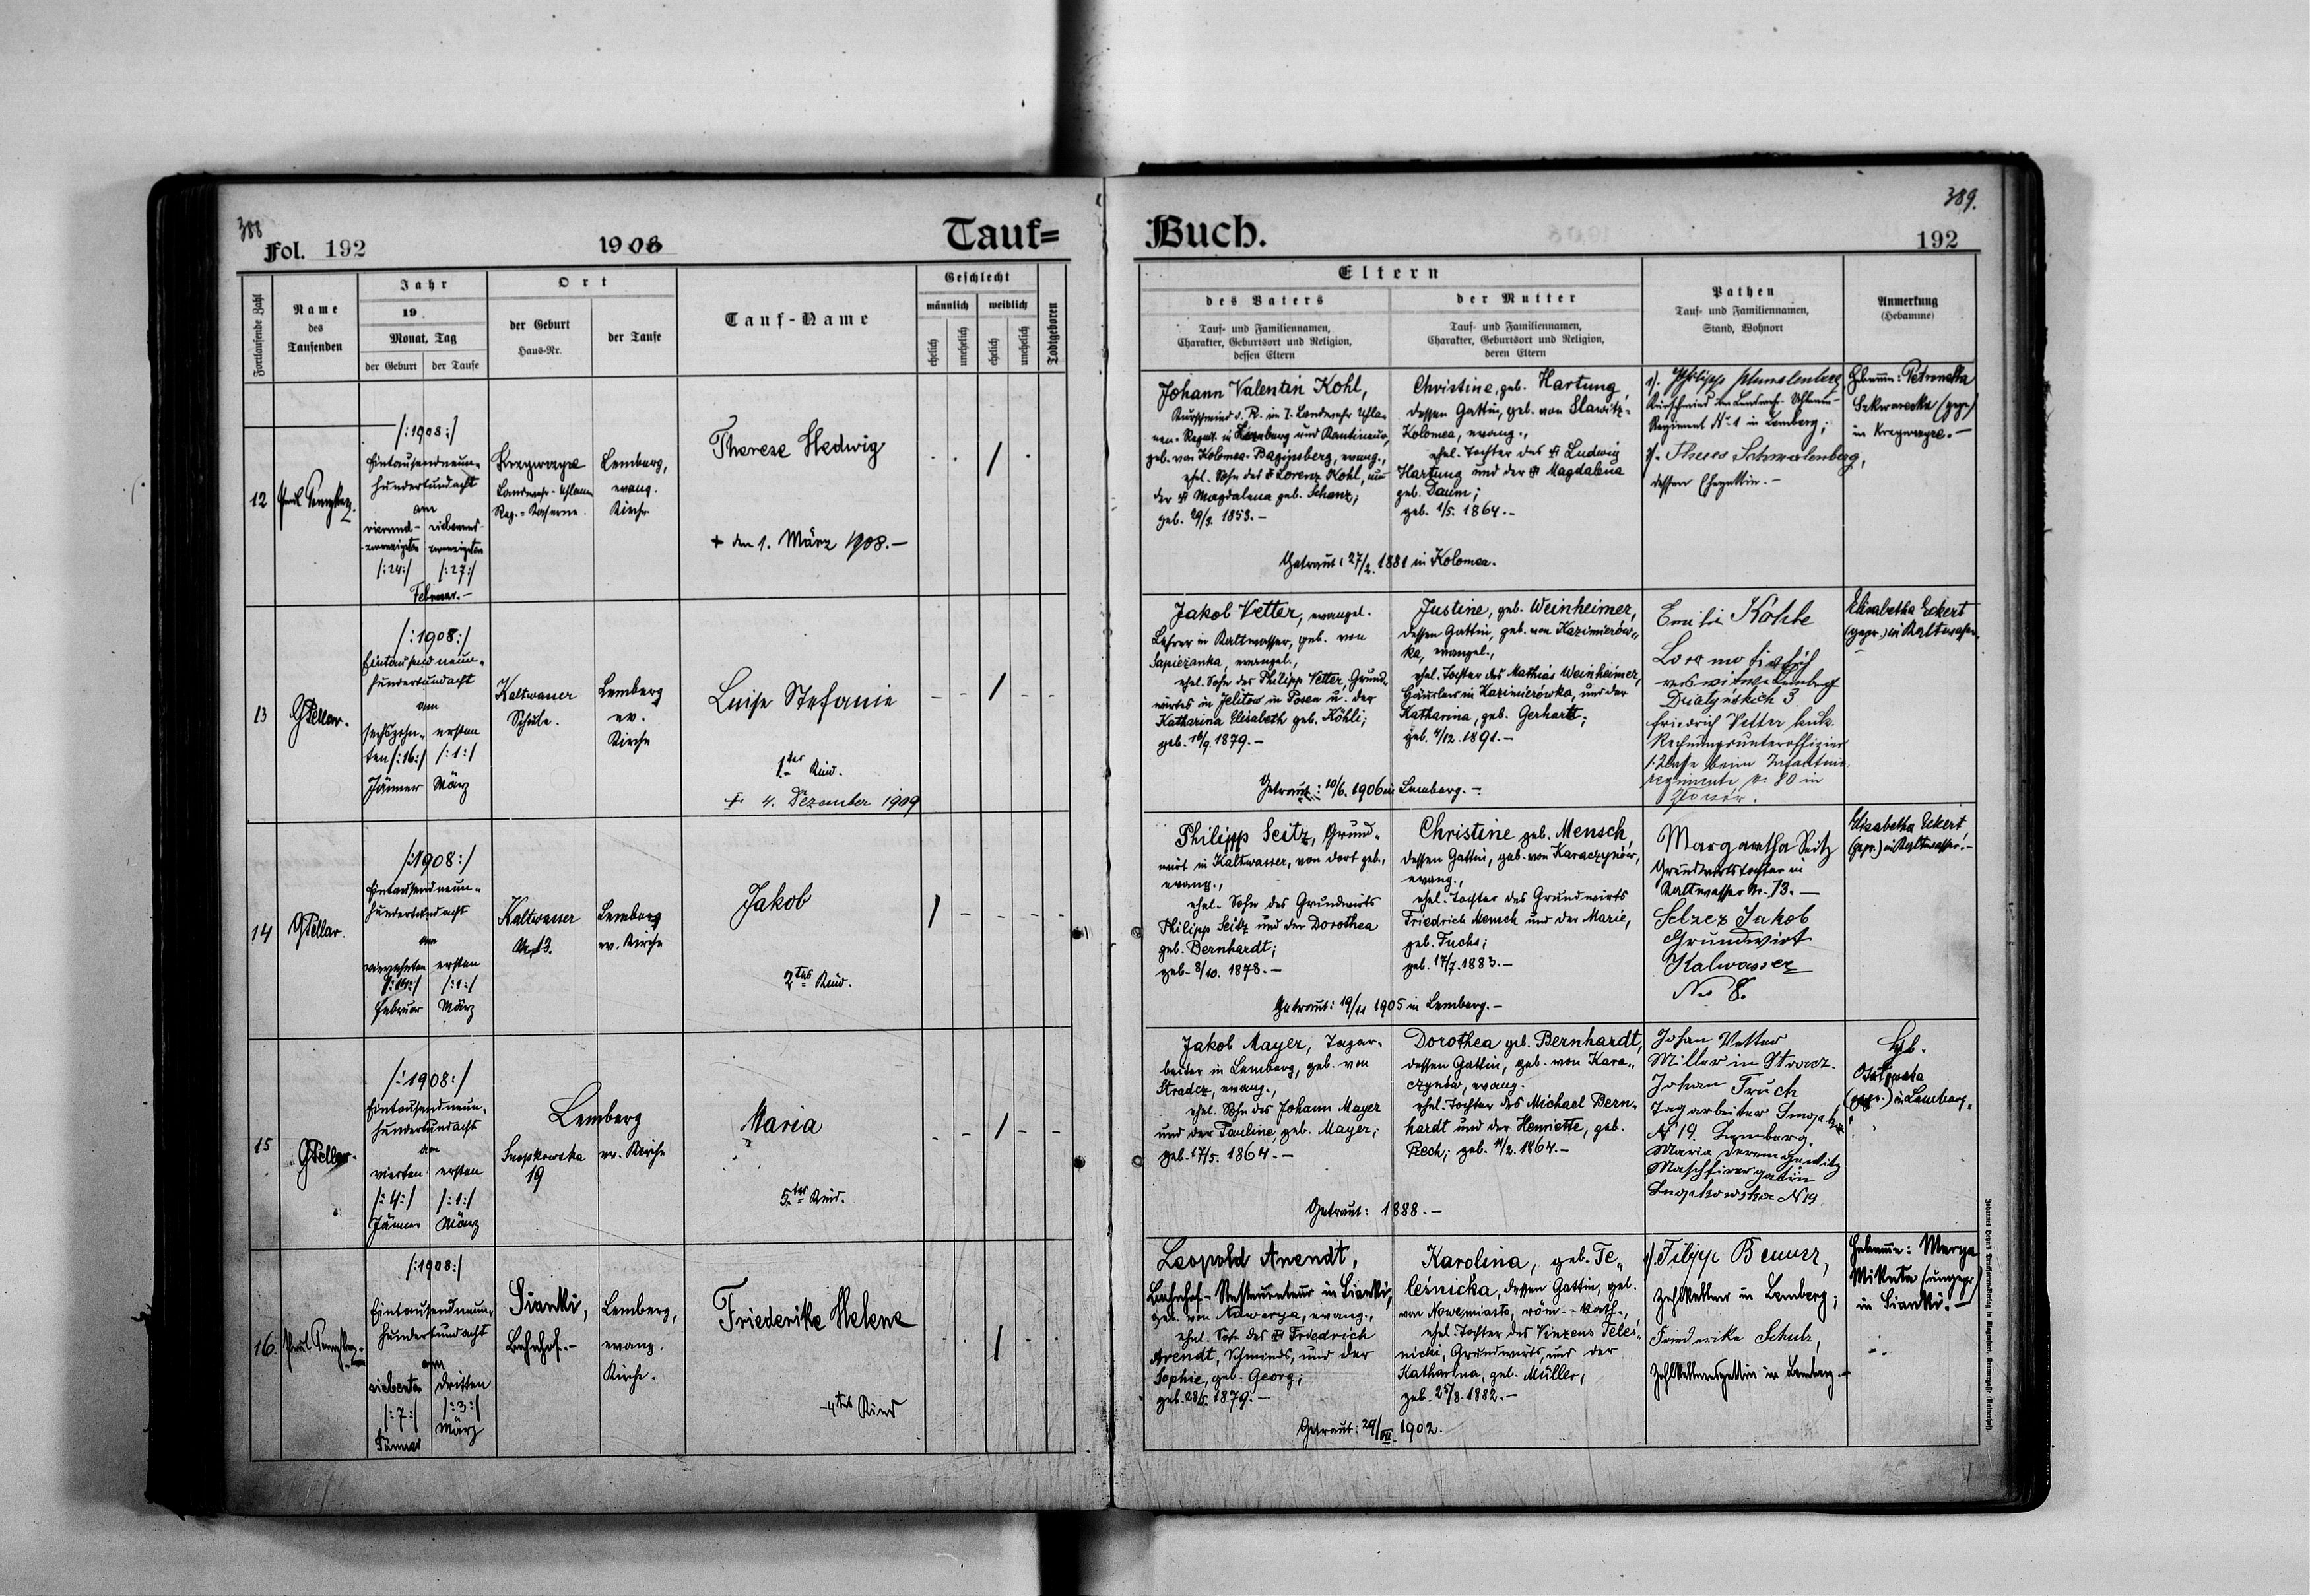 388
Fol. 192
1908
Tauf=
Fortlaufende Zahl
Name
des
Taufenden
Jahr
19
Monat, Tag
der Geburt
der Taufe
Ort
der Geburt
Haus-Nr.
der Taufe
Tauf-Name
Geschlecht
männlich
weiblich
ehelich
unehelich
ehelich
unehelich
Todtgeboren
12
/:1908:/
Eintausendneun-
hundertundacht
am
vierund-
zwanzigsten
/:24:/
siebenund-
zwanzigsten
/:27:/
Februar.-
Landwehr-Uhlanen
Reg.=Kaserne.
Lemberg,
evang.
Kirche
Therese Hedwig
+ den 1. März 1908.-
13
/:1908:/
Eintausendneun-
hundertundacht
am
sechszehn-
ten /:16:/
Jänner
ersten
/:1:/
März
Kaltwasser
Schule.
Lemberg
ev.
Kirche
Luise Stefanie
1tes Kind.
4. Dezember 1909
14
/:1908:/
Eintausendneun-
hundertundacht
am
vierzehnten
/:14:/
Februar
ersten
/:1:/
März
Kaltwasser
Nr. 13.
Lemberg
ev. Kirche
Jakob
2tes Kind.
15
/:1908:/
Eintausendneun-
hundertundacht
am
vierten
/:4:/
Jänner
ersten
/:1:/
März
Lemberg
Snopkowska
19
ev. Kirche
Maria
5tes Kind.
16.
/:1908:/
Eintausendneun-
hundertundacht
am
siebenten
/:7:/
Jänner
dritten
/:3:/
März
Sianki,
Bahnhof.-
Lemberg,
evang.
Kirche.
Friederike Helene
4tes Kind
389.
Buch.
192
Eltern
des Vaters
Tauf- und Familiennamen,
Charakter, Geburtsort und Religion,
dessen Eltern
der Mutter
Tauf- und Familiennamen,
Charakter, Geburtsort und Religion,
deren Eltern
Pathen
Tauf- und Familiennamen,
Stand, Wohnort
Anmerkung
(Hebamme)
Johann Valentin Kohl,
Kurschmied d. R. im 1. Landwehr Uhla-
nen-Regmt. in Lemberg und Kantineur,
geb. von Kolomea-Baginsberg, evang.,
ehel. Sohn des + Lorenz Kohl, und
der + Magdalena geb. Schanz;
geb. 29/3. 1853.-
Christine, geb. Hartung,
dessen Gattin, geb. von Slawitz-
Kolomea, evang.,
ehel. Tochter des + Ludwig
Hartung und der + Magdalena
geb. Daum;
geb. 1/5. 1864.-
Getraut: 27/2. 1881 in Kolomea.
1). Philipp
Kurschmied im Landwehr-Uhlanen-
Regiment No 1 in Lemberg;
2). Theres Schmalenberg,
dessen Ehegattin.-
Hebamme: Petronella
(gepr.)
in
Jakob Vetter, evangel.
Lehrer in Kaltwasser, geb. von
Sapieżanka, evangel.,
ehel. Sohn des Philipp Vetter, Grund-
wirtes in Jelitow in Posen u. der
Katharina Elisabeth geb. Köhli;
geb. 16/9. 1879.-
Justine, geb. Weinheimer,
dessen Gattin, geb. von Kazimierów-
ka, evangel.,
ehel. Tochter des Mathias Weinheimer,
Häuslers in Kazimierówka, und der
Katharina, geb. Gerhardt;
geb. 4/12. 1891.-
Getraut: 10/6. 1906 in Lemberg.-
Emilie Kohle
Lokomotivfüh-
rerswitwe Lemberg
3
Friedrich Vetter k.u.k.
Rechnungsunteroffizier
1. Klasse beim Infanterie
regimente Nr. 80 in
Złoczów.
Elisabetha Eckert
(gepr.) in Kaltwasser
Philipp Seitz, Grund-
wirt in Kaltwasser, von dort geb.,
evang.,
ehel. Sohn des Grundwirts
Philipp Seitz und der Dorothea
geb. Bernhardt;
geb. 8/10. 1878.-
Christine geb. Mensch,
dessen Gattin, geb. von Karaczynów,
evang.,
ehel. Tochter des Grundwirts
Friedrich Mensch und der Marie,
geb. Fuchs;
geb. 17/7. 1883.-
Getraut: 19/11 1905 in Lemberg.-
Margaretha Seitz
Grundwirtstochter in
Kaltwasser Nr. 13.-
Selzer Jakob
Grundwirt
Kalwasser
No 8.
Elisabetha Eckert,
(gepr.) in Kaltwasser.-
Jakob Mayer, Tagar-
beiter in Lemberg, geb. von
Stradcz, evang.,
ehel. Sohn des Johann Mayer
und der Pauline, geb. Mayer;
geb. 17/5. 1864.-
Dorothea geb. Bernhardt,
dessen Gattin, geb. von Kara-
czynów, evang.
ehel. Tochter des Michael Bern-
hardt und der Henriette, geb.
Rech; geb. 11/2. 1864.-
Getraut: 1888.-
Johan Vetter
Miller in Stradcz.
Johan Truch
Tagarbeiter
No 19. Lemberg.
Maria
gatin
Snopkowska N 19
Heb.
(gepr.) in Lemberg.
Leopold Arendt,
Bahnhof-Restaurateur in Sianki,
geb. von Nawarya, evang.,
ehel. Sohn des + Friedrich
Arendt, Schmieds, und der
Sophie, geb. Georg;
geb. 28/5. 1879.-
Karolina, geb. Te-
leśnicka, dessen Gattin, geb.
von Nowemiasto, röm.-kath.,
ehel. Tochter des Vinzens Teleś-
nicki, Grundwirts, und der
Katharina, geb. Müller;
geb. 25/8. 1882.-
Getraut: 29/VII. 1902.
1). Filipp Bemmer,
Zahlkellner in Lemberg;
Friederike Schulz,
Zahlkellnersgattin in Lemberg.-
Hebamme: Marya
Mikuta (ungepr.)
in Sianki.-